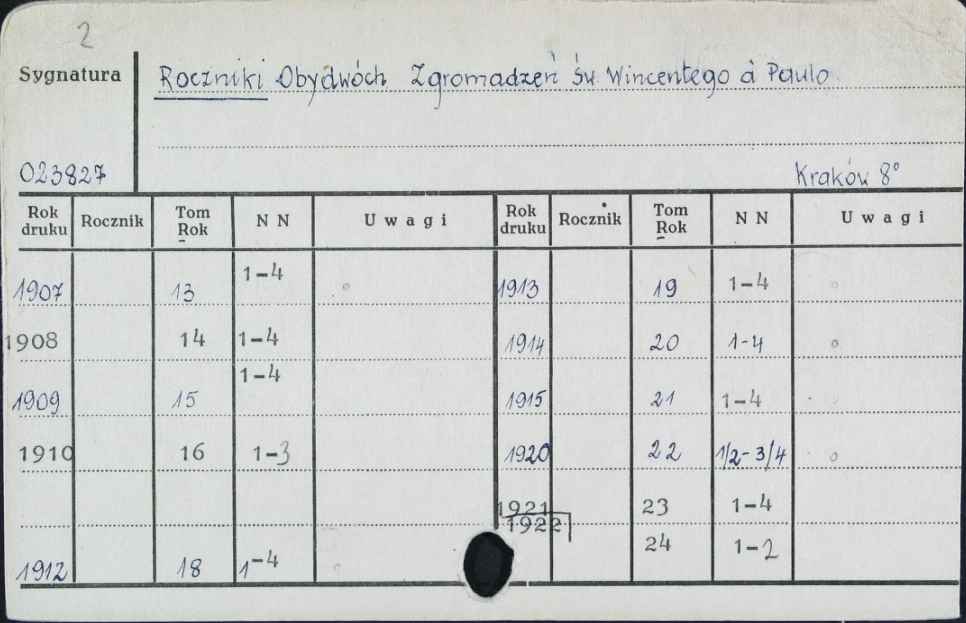 2
Sygnatura
Roczniki Obydwóch Zgromadzeń św. Wincentego à Paulo
023827
Kraków 8°
Rok druku Rocznik Tom Rok N N Uwagi Rok druku Rocznik Tom Rok N N Uwagi
1907 13 1-4 1913 19 1-4
1908 14 1-4 1914 20 1-4
1909 15 1-4 1915 21 1-4
1910 16 1-3 1920 22 1/2-3/4
1921 23 1-4
1922 24 1-2
1912 18 1-4